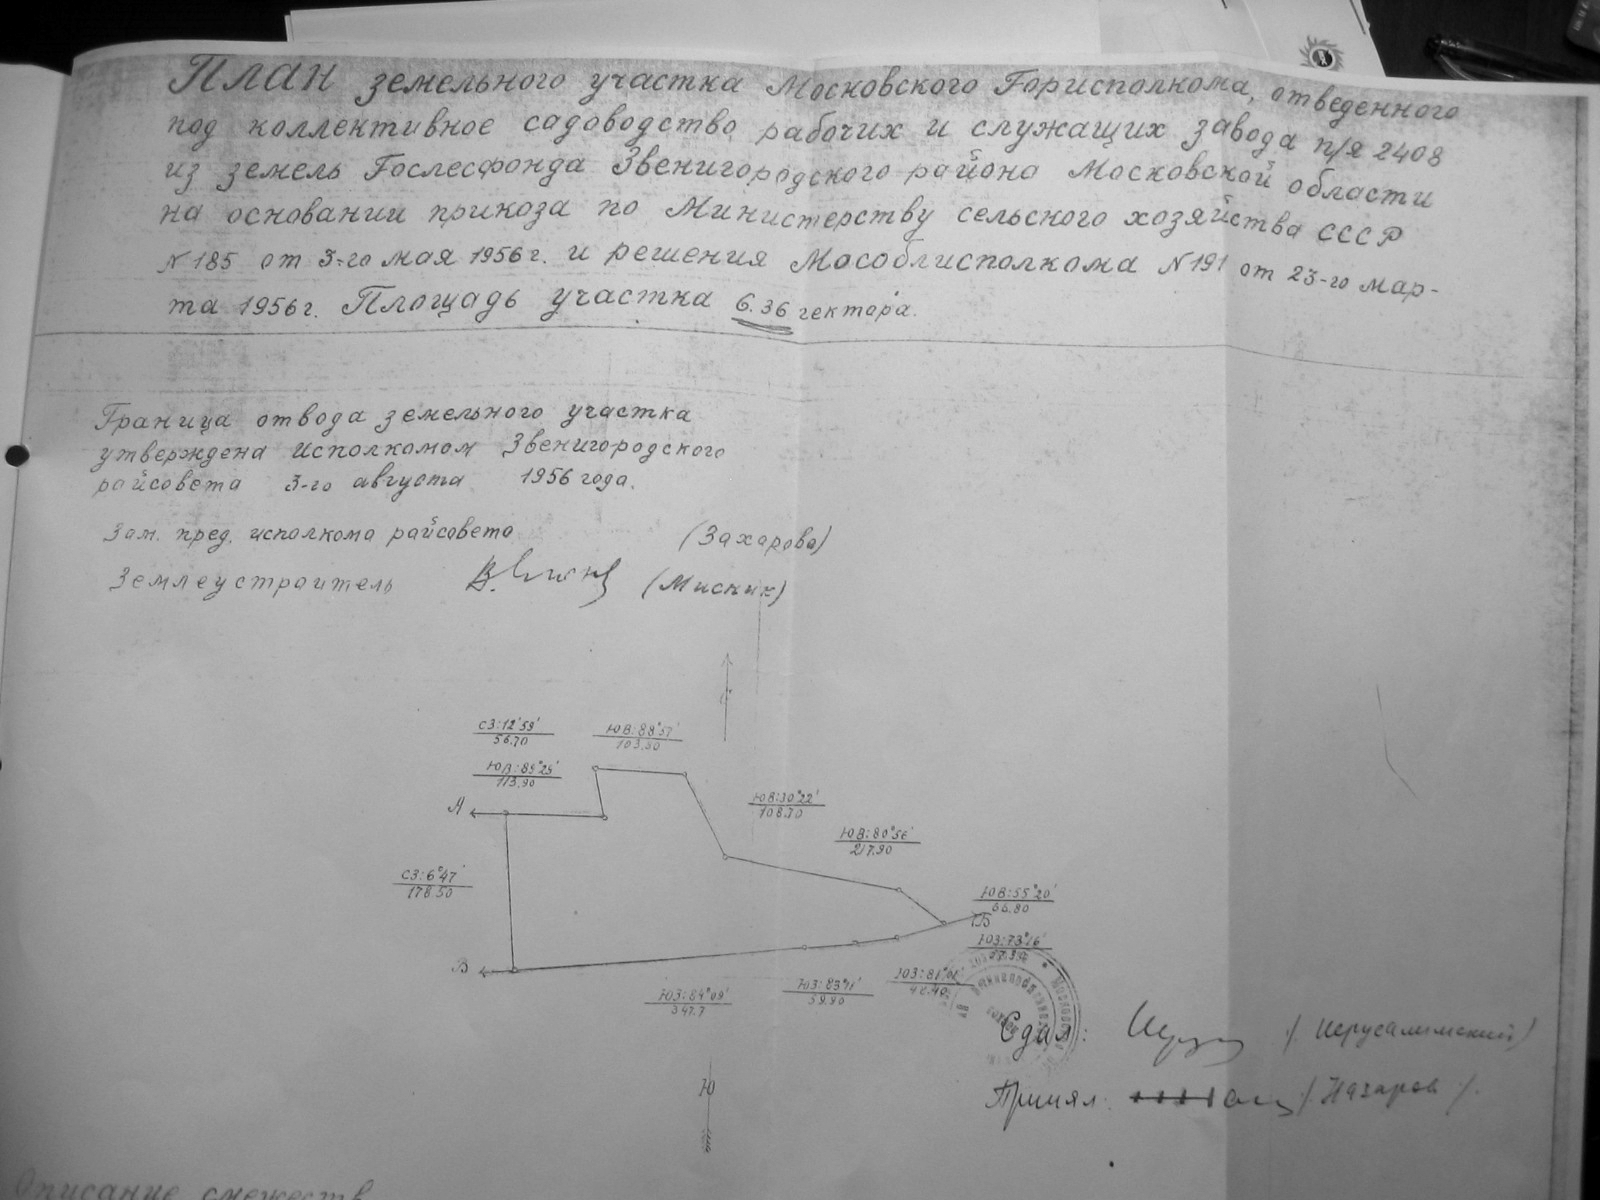 План земельного участка Московского Горисполкома, отведенного
под коллективное садоводство рабочих и служащих завода п/я 2408
из земель Гослесфонда Звенигородского района Московской области
на основании приказа по Министерству сельского хозяйства СССР
N 185 от 3-го мая 1956 г. и решения Мособлисполкома N 191 от 23-го мар-
та 1956 г. Площадь участка 6.36 гектара.
Граница отвода земельного участка
утверждена исполкомом Звенигородского
райсовета 3-го августа 1956 года.
Зам. пред. исполкома райсовета (Захарова)
Землеустроитель (Мисник)
С
СЗ:12°59'
56.70
ЮВ:88°57'
103.50
ЮВ:85°25'
113.90
А
ЮВ:30°22'
108.70
ЮВ:80°56'
217.90
СЗ:6°47'
178.50
ЮВ:55°20'
66.80
Б
ЮЗ:73°16'
В
ЮЗ:81°01'
42.40
ЮЗ:83°11'
59.90
ЮЗ:84°09'
347.7
Сдал: /Иерусалимский/
Ю
Принял: /Назаров/.
Описание смежеств